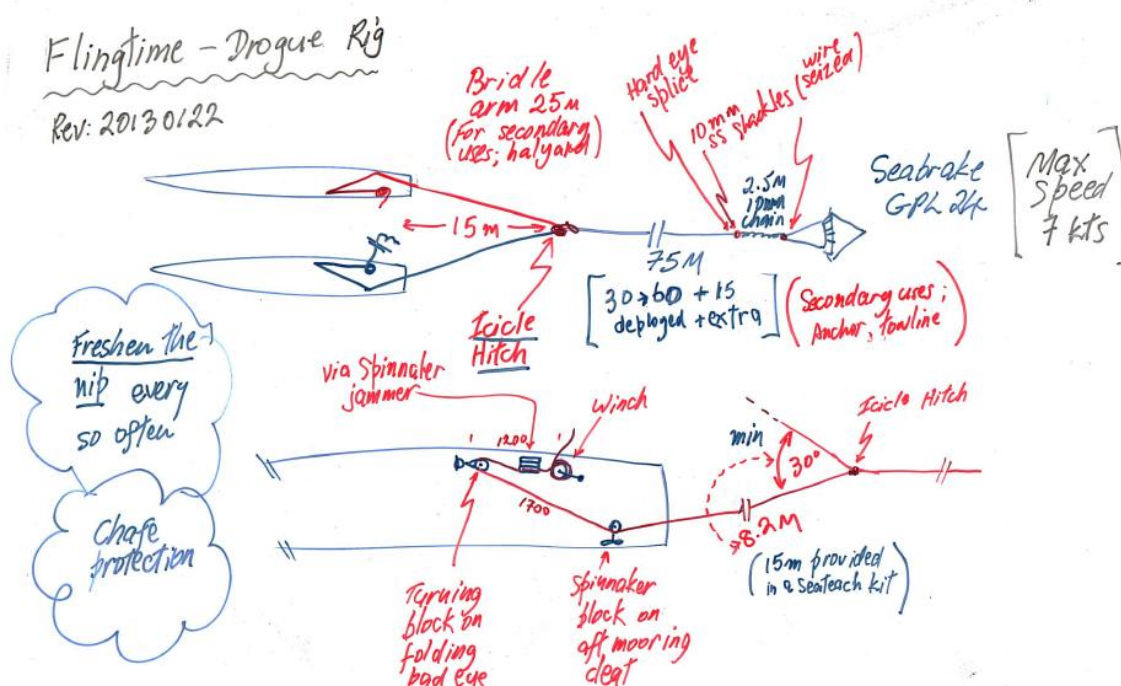 Flingtime - Drogue Rig
Rev: 20130122
Bridle
arm 25M
(For secondary
uses; halyard)
Hard eye
splice
10mm
SS shackles
(wire
seized)
2.5M
10mm
chain
Seabrake
GPL 24
[Max
Speed
7 kts]
15m
75M
[30→60 + 15
deployed + extra]
(Secondary uses;
Anchor, towline)
Icicle
Hitch
Freshen the
nip every
so often
Chafe
protection
via Spinnaker
jammer
Winch
1200
1700
Icicle Hitch
min
30°
8.2M
(15m provided
in a Seateach kit)
Turning
block on
folding
pad eye
Spinnaker
block on
aft mooring
cleat